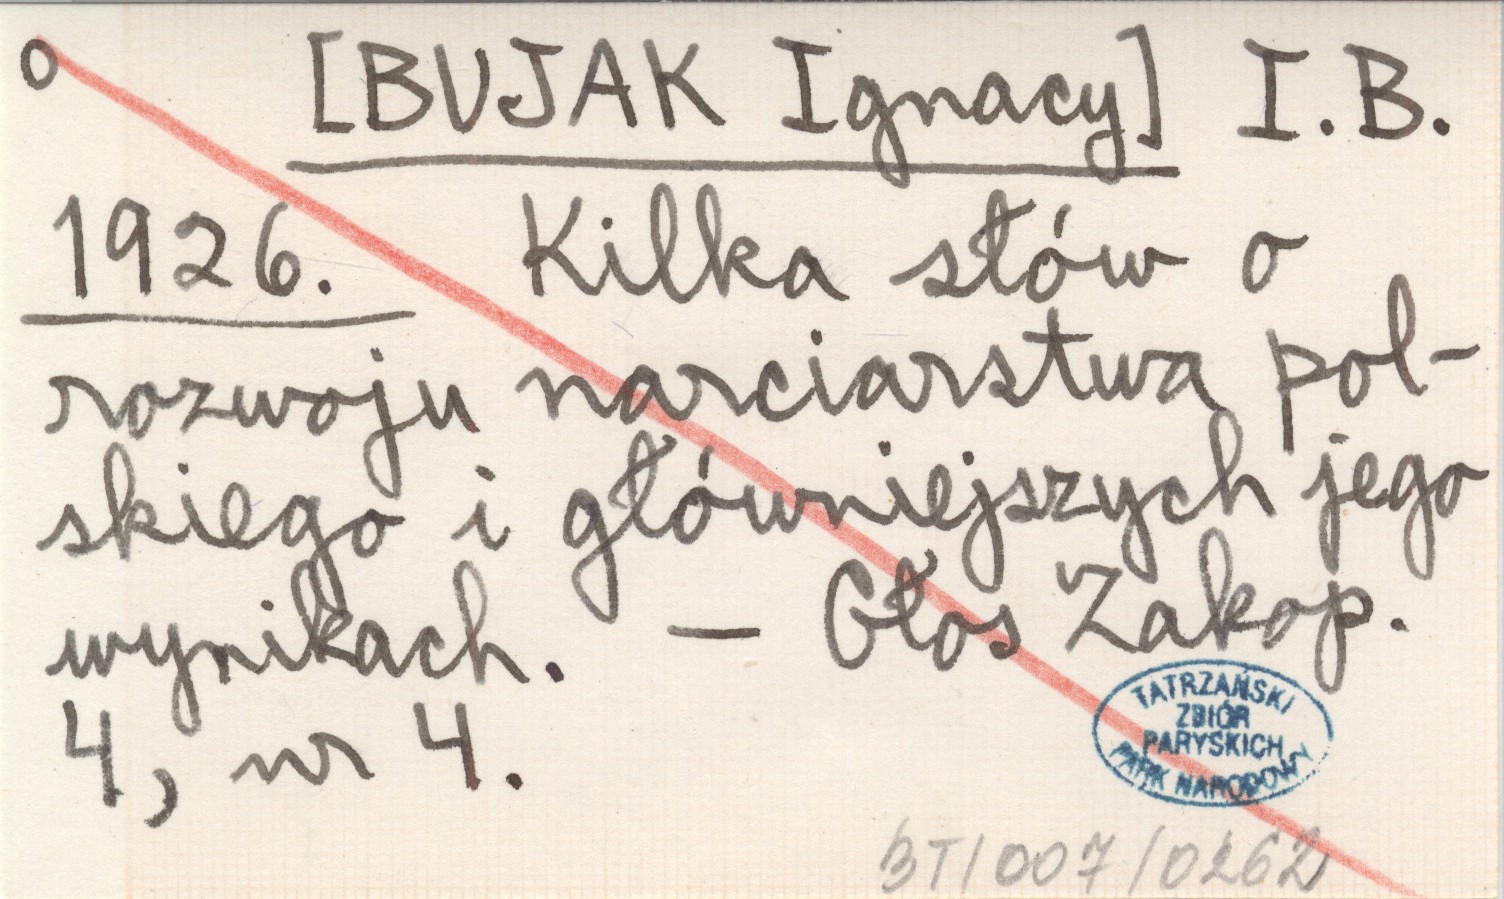 o [BUJAK Ignacy] I.B.
1926. Kilka słów o
rozwoju narciarstwa pol-
skiego i główniejszych jego
wynikach. — Głos Zakop.
4, nr 4.
TATRZAŃSKI
ZBIÓR
PARYSKICH
PARK NARODOWY
BT/007/0262